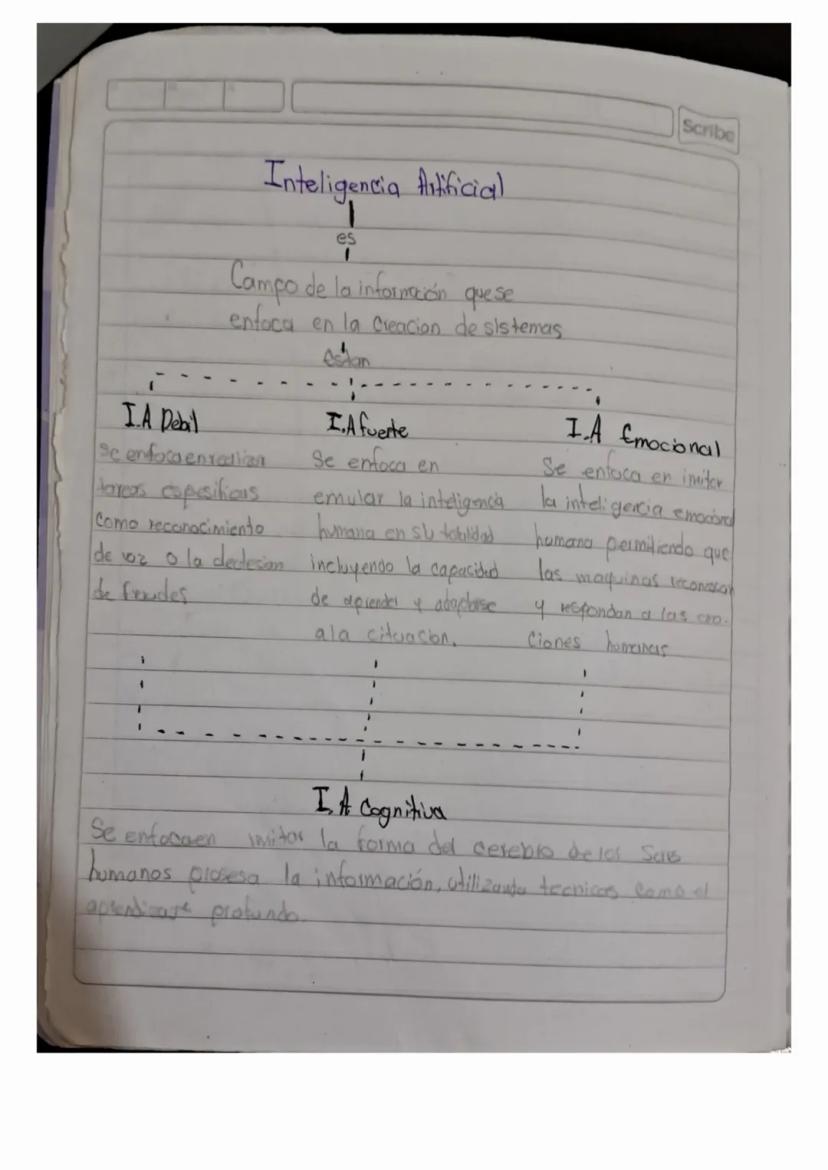 Scribe
Inteligencia Artificial
es
Campo de la información que se
enfoca en la creacion de sistemas
estan
I.A Debil
Se enfoca en realiza
tareas espesificas
como reconocimiento
de voz o la deteccion
de fraudes
I.A fuerte
Se enfoca en
emular la inteligencia
humana en su totalidad
incluyendo la capacidad
de aprender y adaptarse
a la cituacion.
I.A Emocional
Se enfoca en imitar
la inteligencia emocional
humana permitiendo que
las maquinas reconoscan
y respondan a las emo-
ciones humanas
I.A Cognitiva
Se enfoca en imitar la forma del cerebro de los Seres
humanos prosesa la información, utilizando tecnicas como el
aprendizaje profundo.